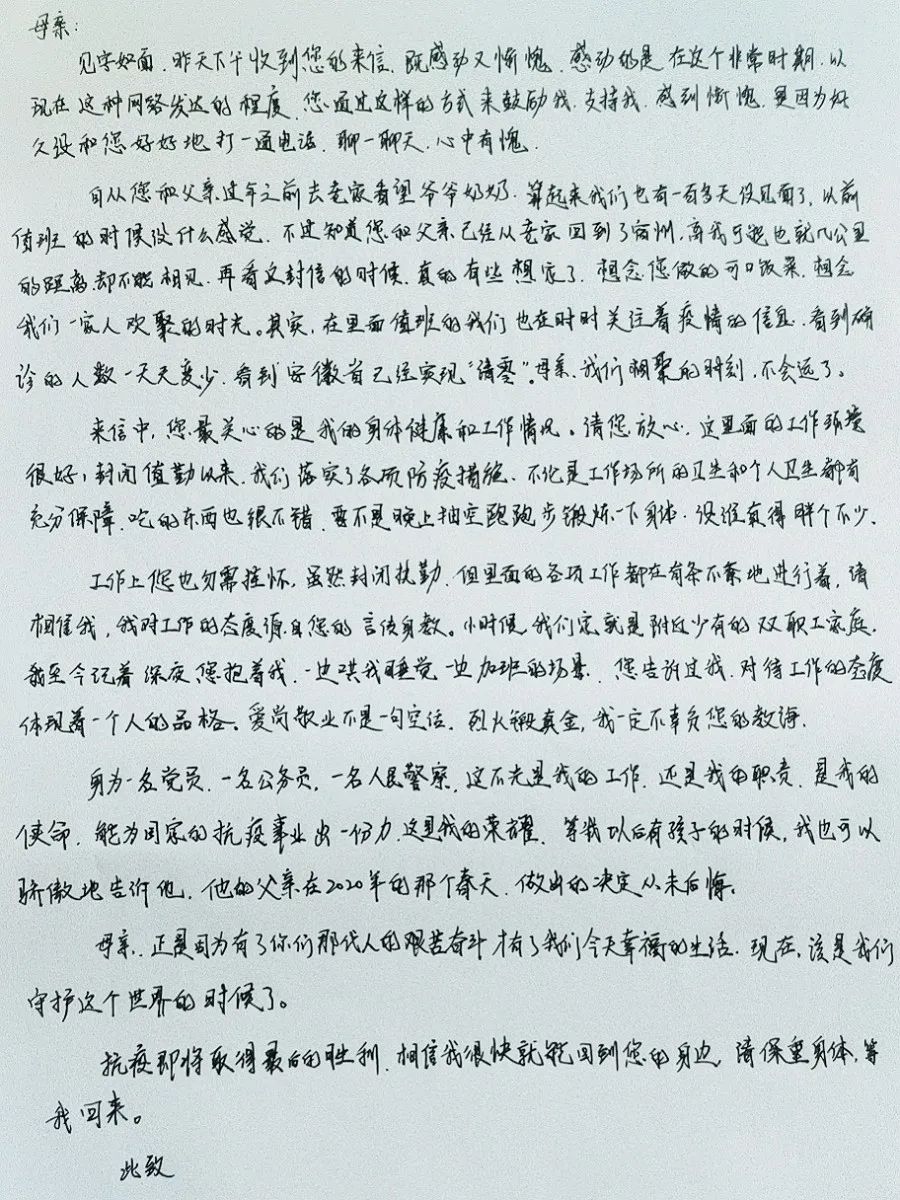 母亲:
见字如面.昨天下午收到您的来信.既感动又惭愧.感动的是在这个非常时期.以
现在这种网络发达的程度.您通过这样的方式来鼓励我.支持我.感到惭愧.是因为好
久没和您好好地打一通电话.聊一聊天.心中有愧.
自从您和父亲过年之前去老家看望爷爷奶奶.算起来我们也有一百多天没见面了.以前
值班的时候没什么感觉.不过知道您和父亲已经从老家回到了宿州,离我可能也就几公里
的距离却不能相见.再看这封信的时候.真的有些想家了.想念您做的可口饭菜.想念
我们一家人欢聚的时光。其实,在里面值班的我们也在时时关注着疫情的信息.看到确
诊的人数一天天变少.看到安徽省已经实现“清零”.母亲.我们相聚的时刻,不会远了。
来信中,您最关心的是我的身体健康和工作情况。请您放心.这里面的工作环境
很好,封闭值勤以来.我们落实了各项防疫措施.不论是工作场所的卫生和个人卫生都有
充分保障.吃的东西也很不错.要不是晚上抽空跑跑步锻炼一下身体.没准真得胖个不少.
工作上您也勿需挂怀.虽然封闭执勤.但里面的各项工作都在有条不紊地进行着.请
相信我,我对工作的态度源自您的言传身教。小时候.我们家就是附近少有的双职工家庭.
我至今记着深夜您抱着我.一边哄我睡觉一边加班的场景.您告诉过我.对待工作的态度
体现着一个人的品格。爱岗敬业不是一句空话.烈火锻真金,我一定不辜负您的教诲.
身为一名党员.一名公务员,一名人民警察.这不光是我的工作.还是我的职责.是我的
使命.能为国家的抗疫事业出一份力.这是我的荣耀.等我以后有孩子的时候,我也可以
骄傲地告诉他.他的父亲在2020年的那个春天.做出的决定从未后悔。
母亲.正是因为有了你们那代人的艰苦奋斗才有了我们今天幸福的生活.现在,该是我们
守护这个世界的时候了。
抗疫即将取得最后的胜利.相信我很快就能回到您的身边.请保重身体,等
我回来。
此致